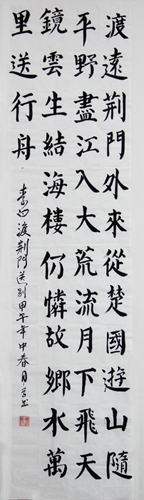 渡遠荆門外來從楚國遊山隨
平野盡江入大荒流月下飛天
鏡雲生結海樓仍憐故鄉水萬
里送行舟
李白渡荆門送别甲午年中春月